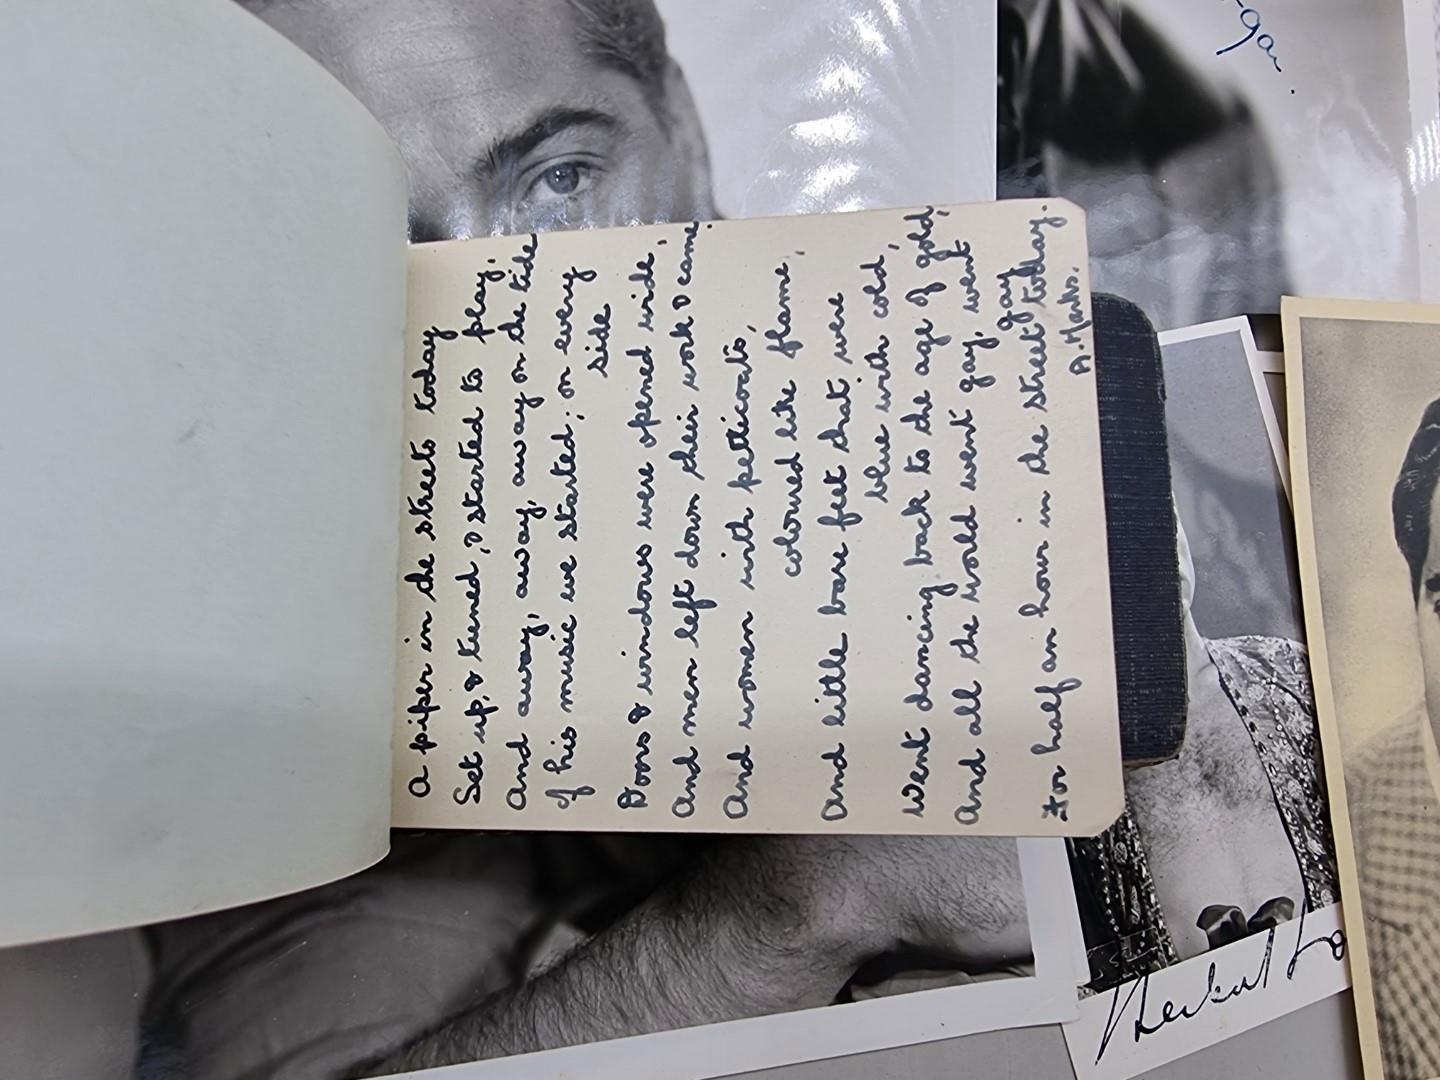 A piper in the streets today
Set up, & tuned, & started to play,
And away, away, away on the tide
Of his music we started; on every
side
Doors & windows were opened wide,
And men left down their work & came,
And women with petticoats,
coloured like flame,
And little bare feet that were
blue with cold,
Went dancing back to the age of gold,
And all the world went gay, went
gay
For half an hour in the street today.
A. Marks.
Herbert Lo